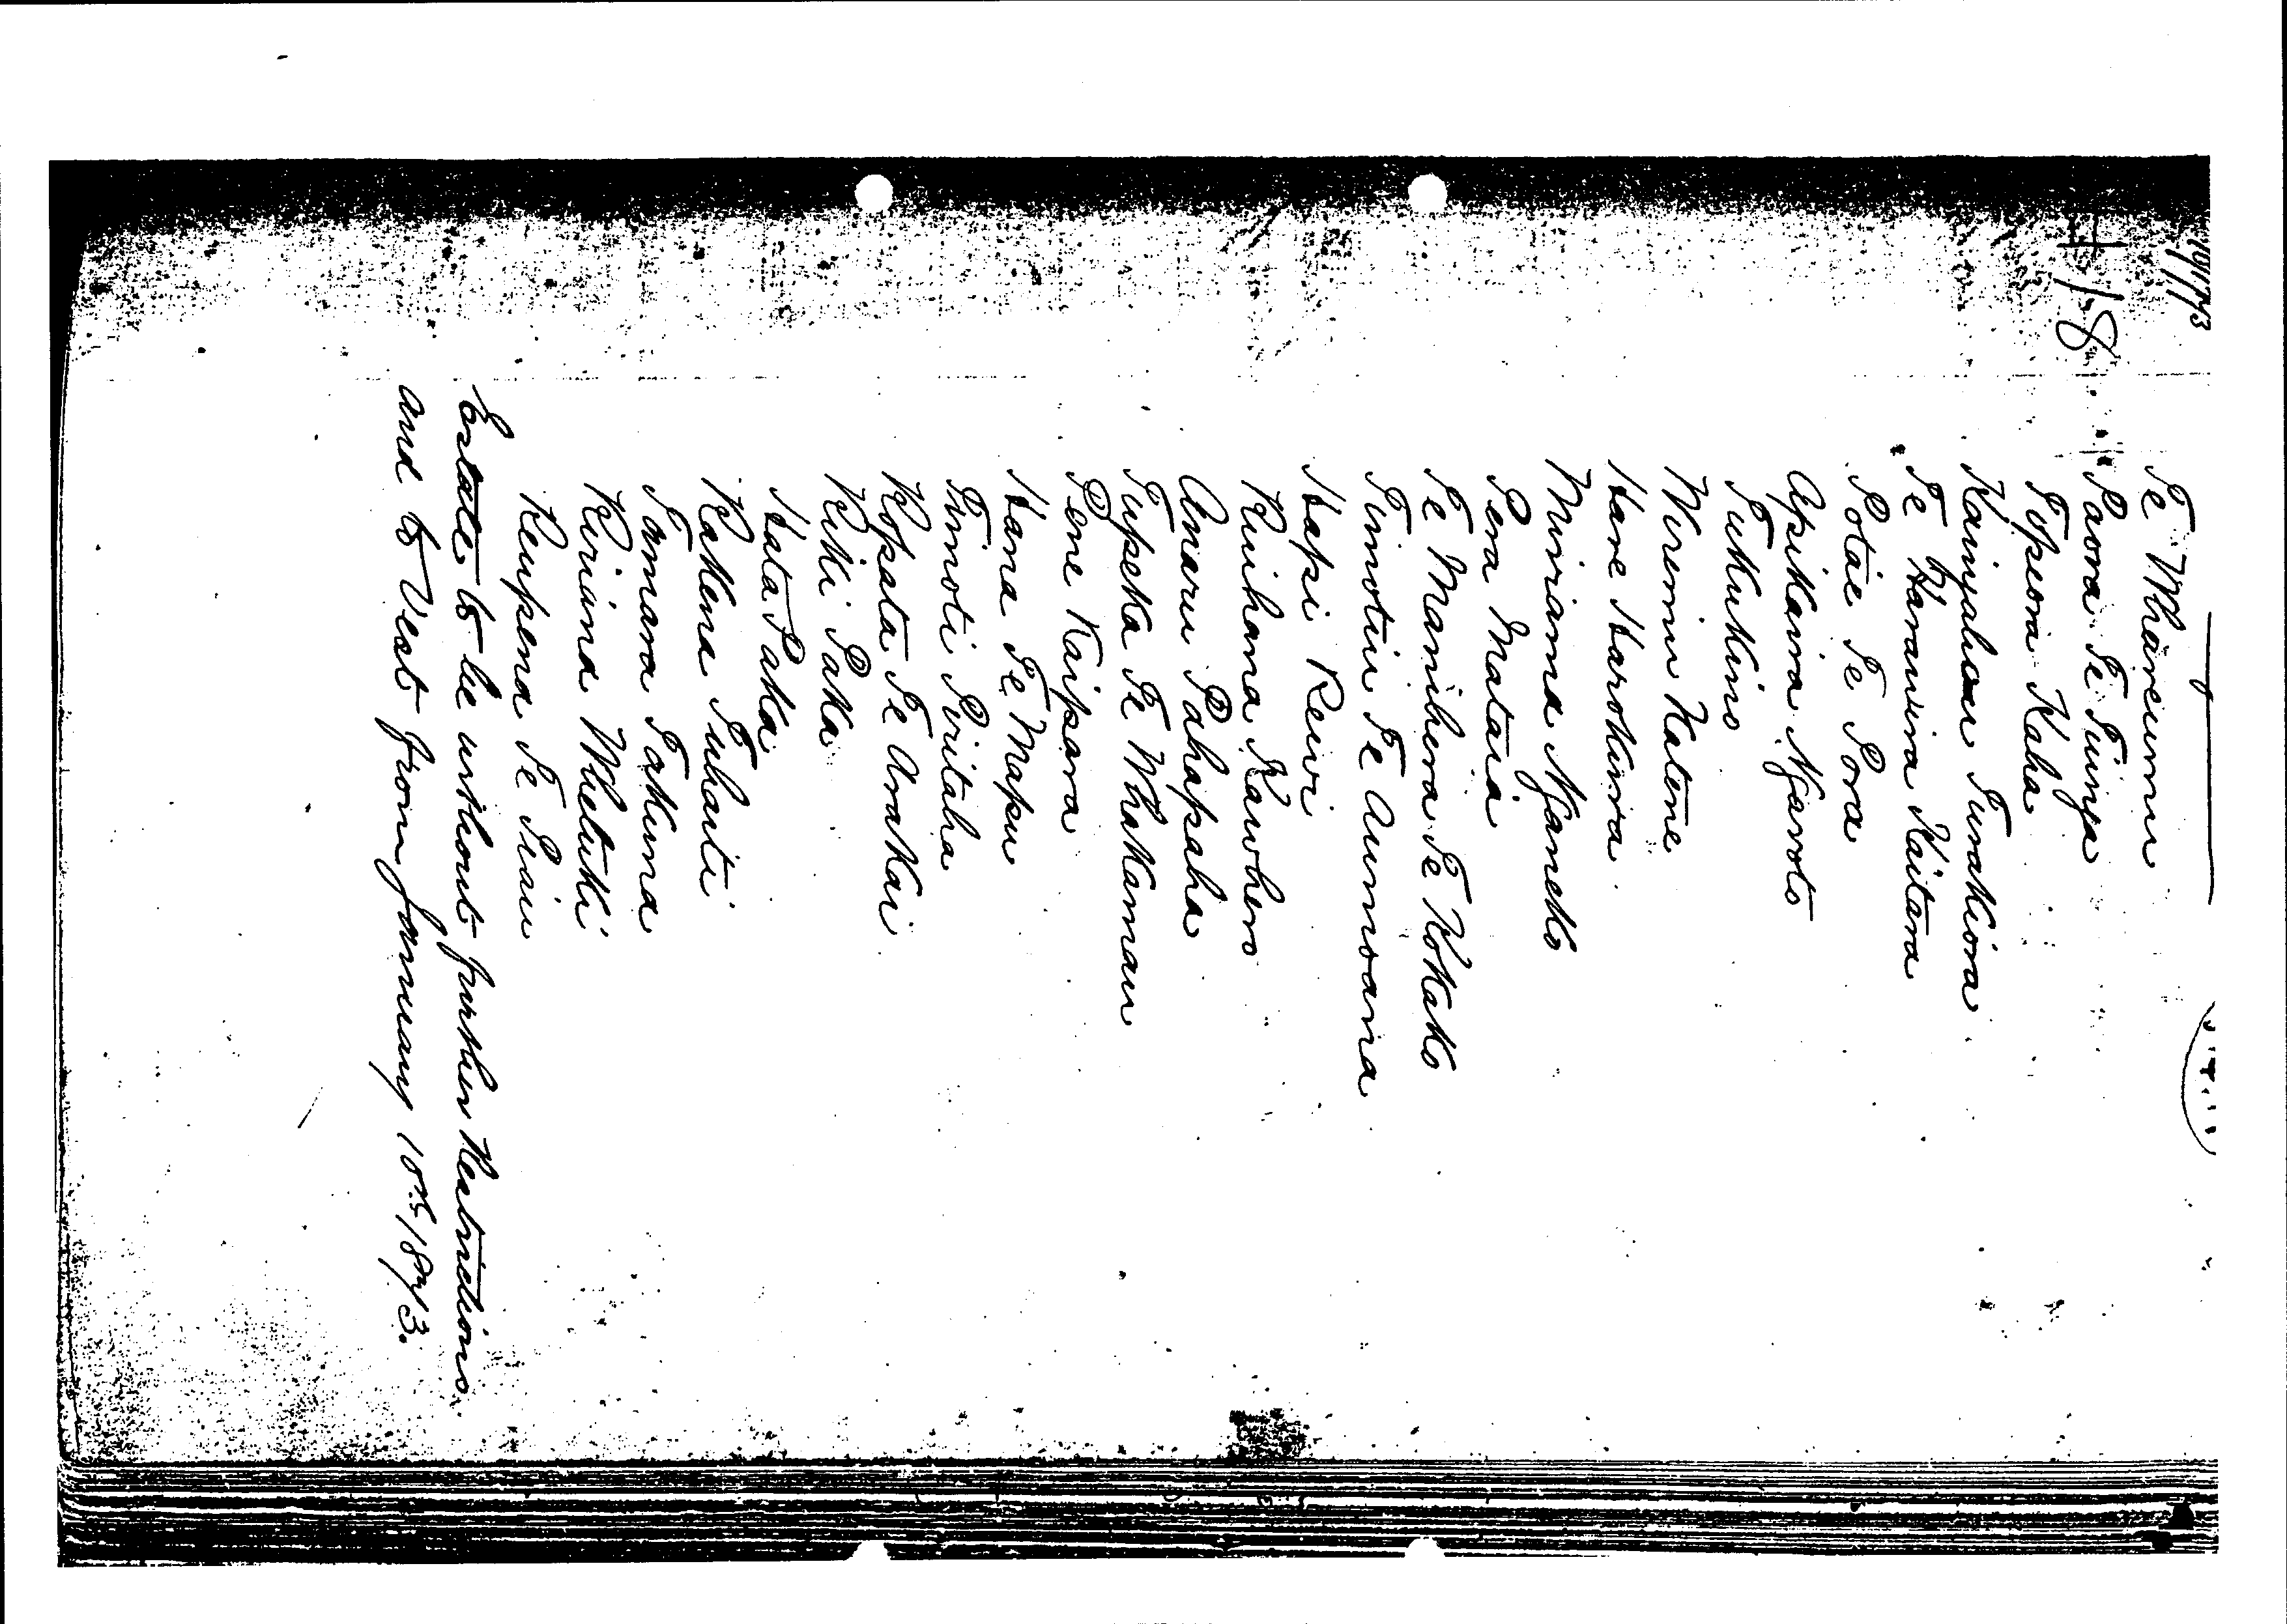 1873
H/8
Te Whareumu
Paora Te Tuinga
Topeora Kaha
Kaingahau Turakiora
Te Harawira Kaitara
Potae Te Pora
Apikaira Ngaroto
Tukukino
Wiremu Katene
Hare Harokura
Miriama Nganeko
Pera Mataia
Te Manihera Te Kokako
Timotiu Te Aumoana
Hapi Rewi
Ruihana Kawhero
Amaru Pahapaha
Tupeka Te Whakamau
Pene Kaipara
Hama Te Mapu
Timoti Piritaha
Ropata Te Arakai
Riki Paka
Hata Paka
Rakena Tuhaiti
Tamara Takuna
Ririana Whetuki
Reupena Te Piau
Estate to be without further Restrictions
and to Vest from January 10th 1873.